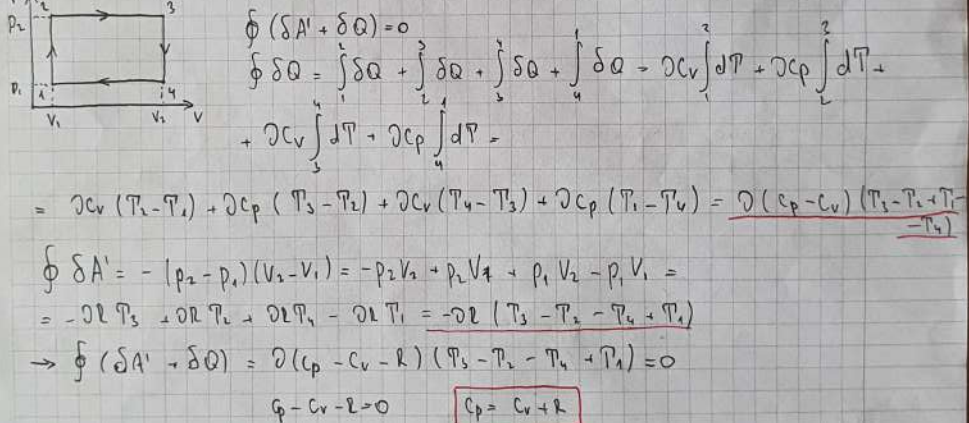 p₂ 2 3
p₁ 1 4
V₁ V₂ V
∮ (δA' + δQ) = 0
∮ δQ = ∫₁² δQ + ∫₂³ δQ + ∫₃⁴ δQ + ∫₄¹ δQ = νc_v ∫₁² dT + νc_p ∫₂³ dT +
+ νc_v ∫₃⁴ dT + νc_p ∫₄¹ dT =
= νc_v (T₂-T₁) + νc_p (T₃-T₂) + νc_v (T₄-T₃) + νc_p (T₁-T₄) = ν(c_p-c_v)(T₃-T₂+T₁-
-T₄)
∮ δA' = -(p₂-p₁)(V₂-V₁) = -p₂V₂ + p₂V₁ + p₁V₂ - p₁V₁ =
= -νRT₃ + νRT₂ + νRT₄ - νRT₁ = -νR (T₃ - T₂ - T₄ + T₁)
→ ∮ (δA' + δQ) = ν(c_p - c_v - R)(T₃ - T₂ - T₄ + T₁) = 0
c_p - c_v - R = 0 c_p = c_v + R